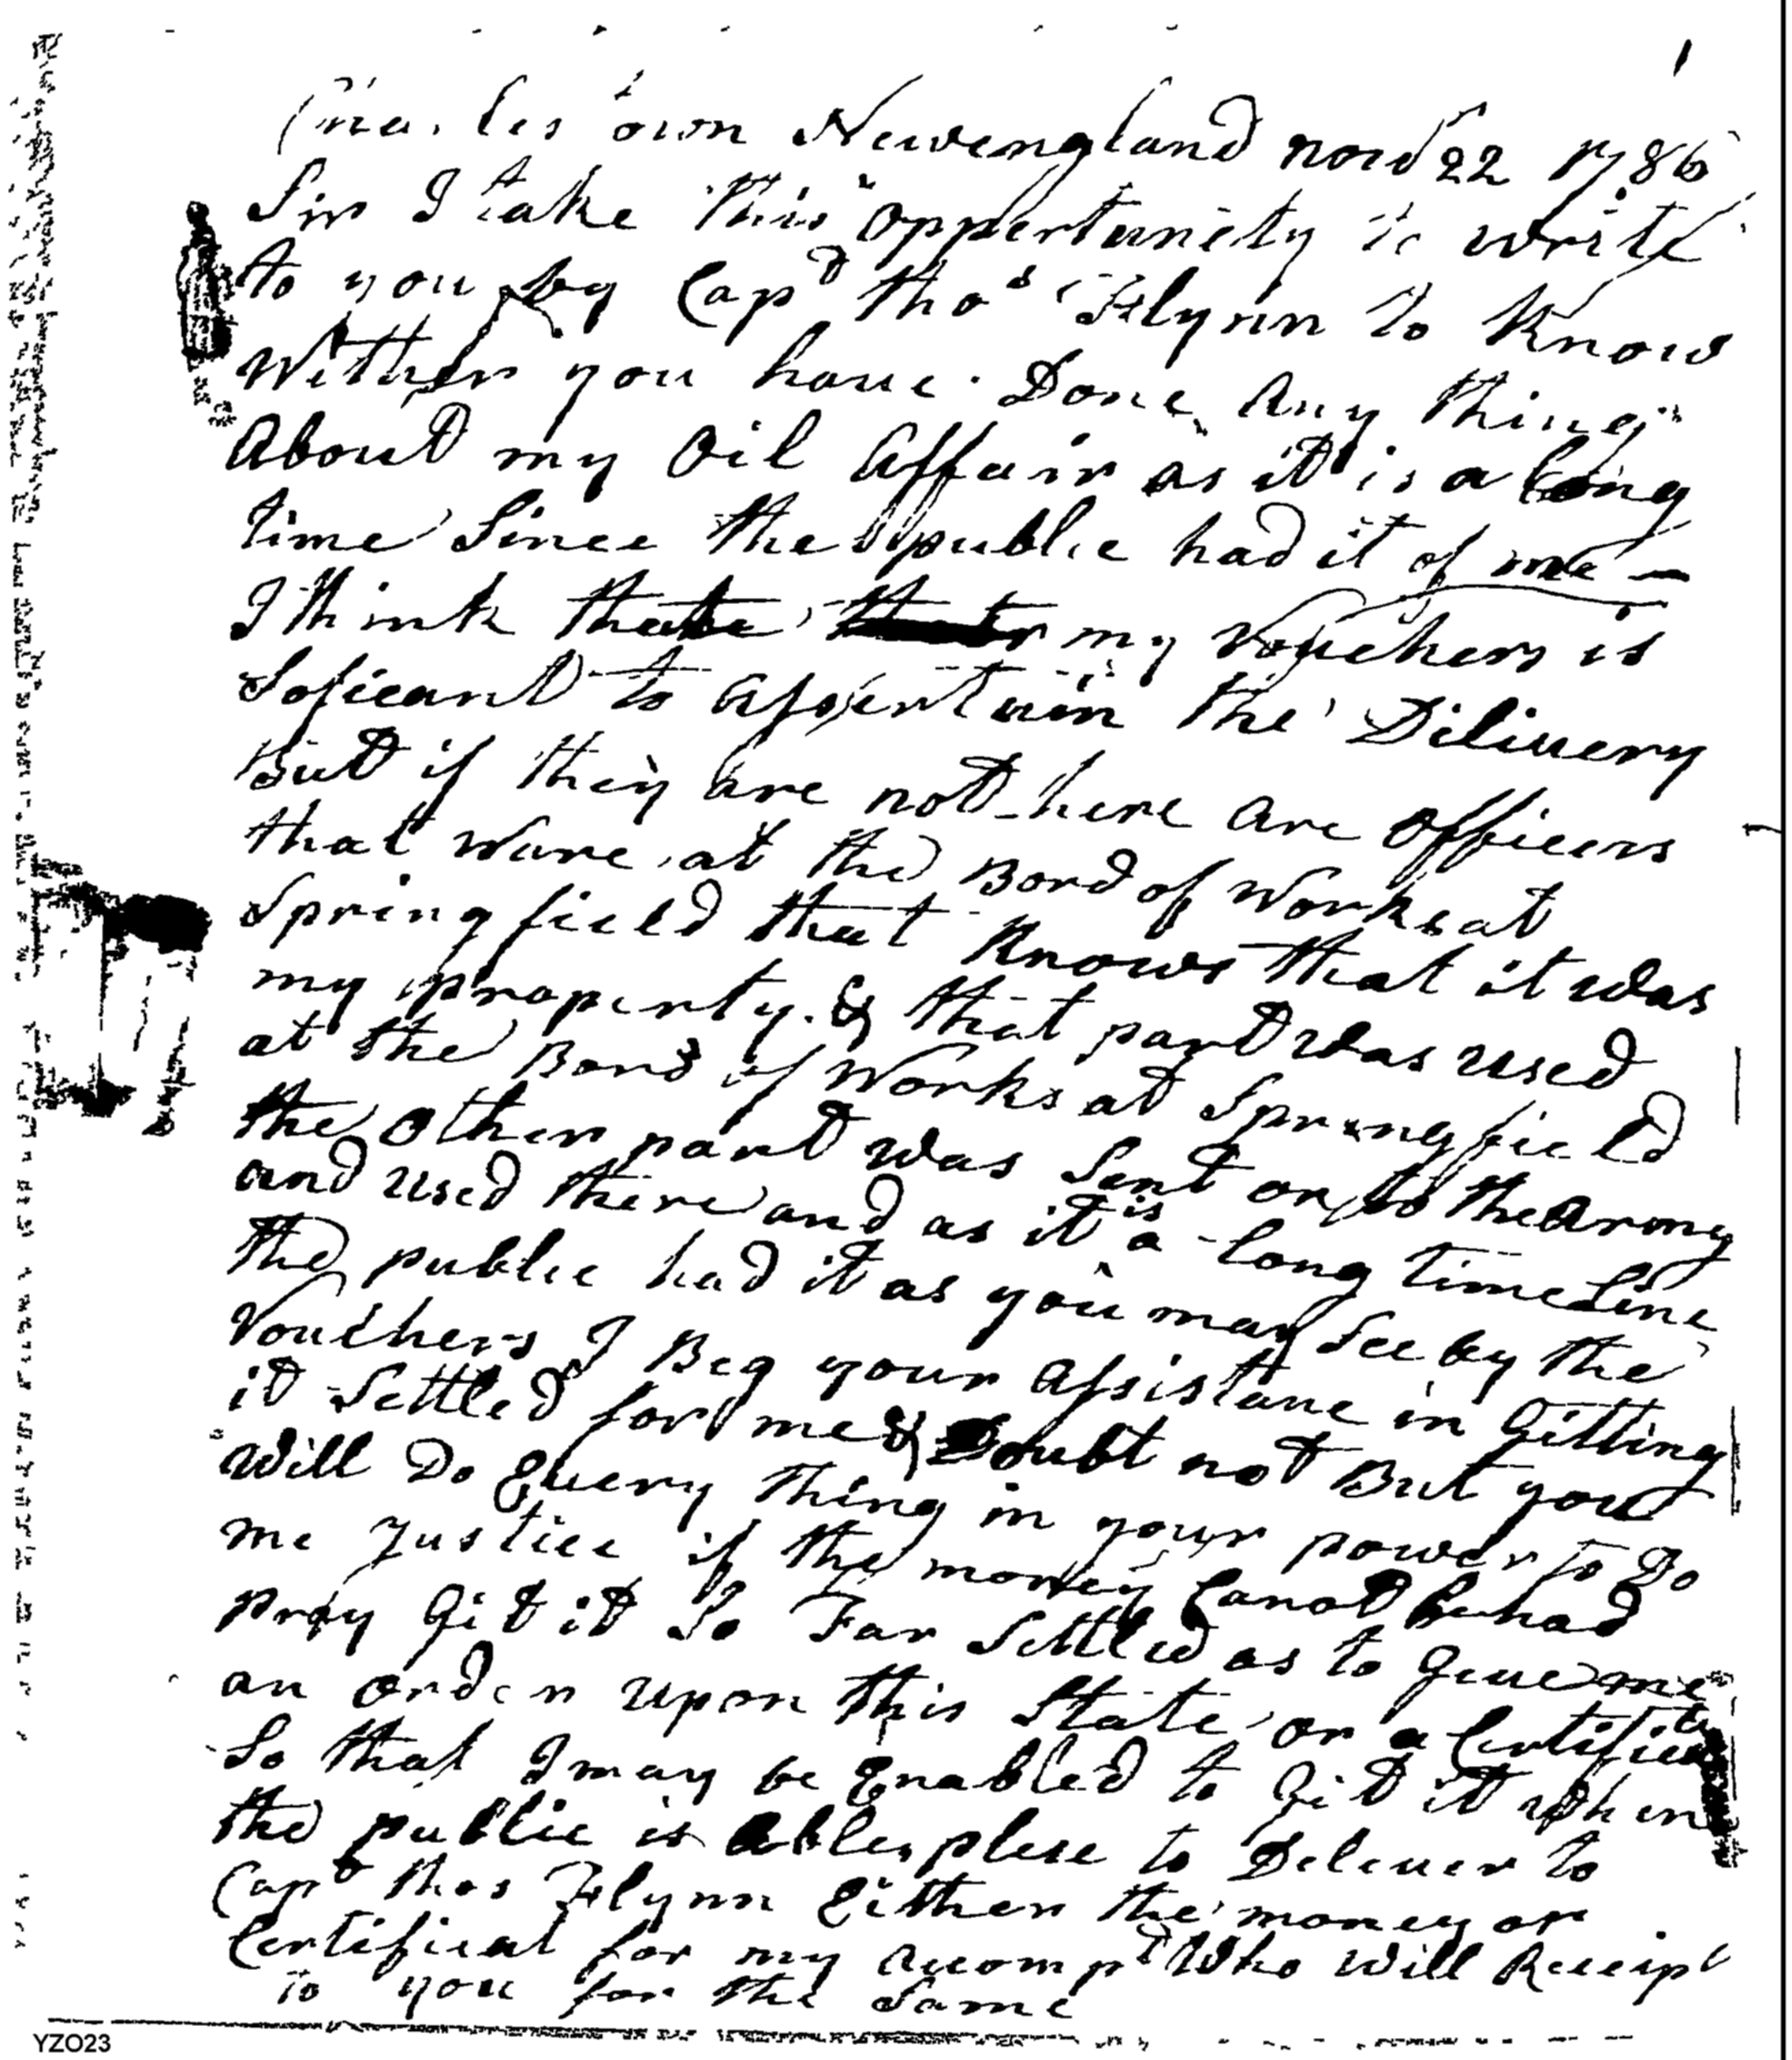 1
Charlestown Newengland novd 22 1786
Sir I take this oppertunety to write
to you by Capt thos Flynn to Know
Wether you have Done Any thing
About my Oil Affair as it is a long
time Since the public had it of me —
I think that my vouchers is
Soficant to assertain the Dilivery
But if they are not here are officers
that ware at the Bord of Works at
Springfield that Knows that it was
my property. & that part was used
at the Bord of Works at Springfield
the Other part was Sent on to the Army
and used there and as it is a long time Sine
the public had it as you may See by the
Vouchers I Beg your Assistane in Gitting
it Settled for me & Doubt not But you
will Do Every thing in your power to Do
me Justice if the money Canot be had
pray Git it So Far Settled as to Giue me
an order upon this State or a Certificate
So that I may be Enabled to Git it when
the public is Able, plese to Deliuer to
Capt thos Flynn Either the money or
Certificat for my Accompt Who will Receipt
to you for the Same
YZO23